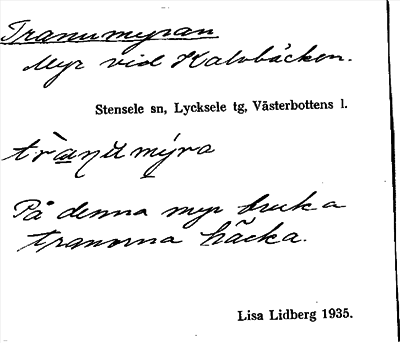 Tranumyran
Myr vid Kalvbäcken.
Stensele sn, Lycksele tg, Västerbottens l.
På denna myr bruka
tranorna häcka.
Lisa Lidberg 1935.